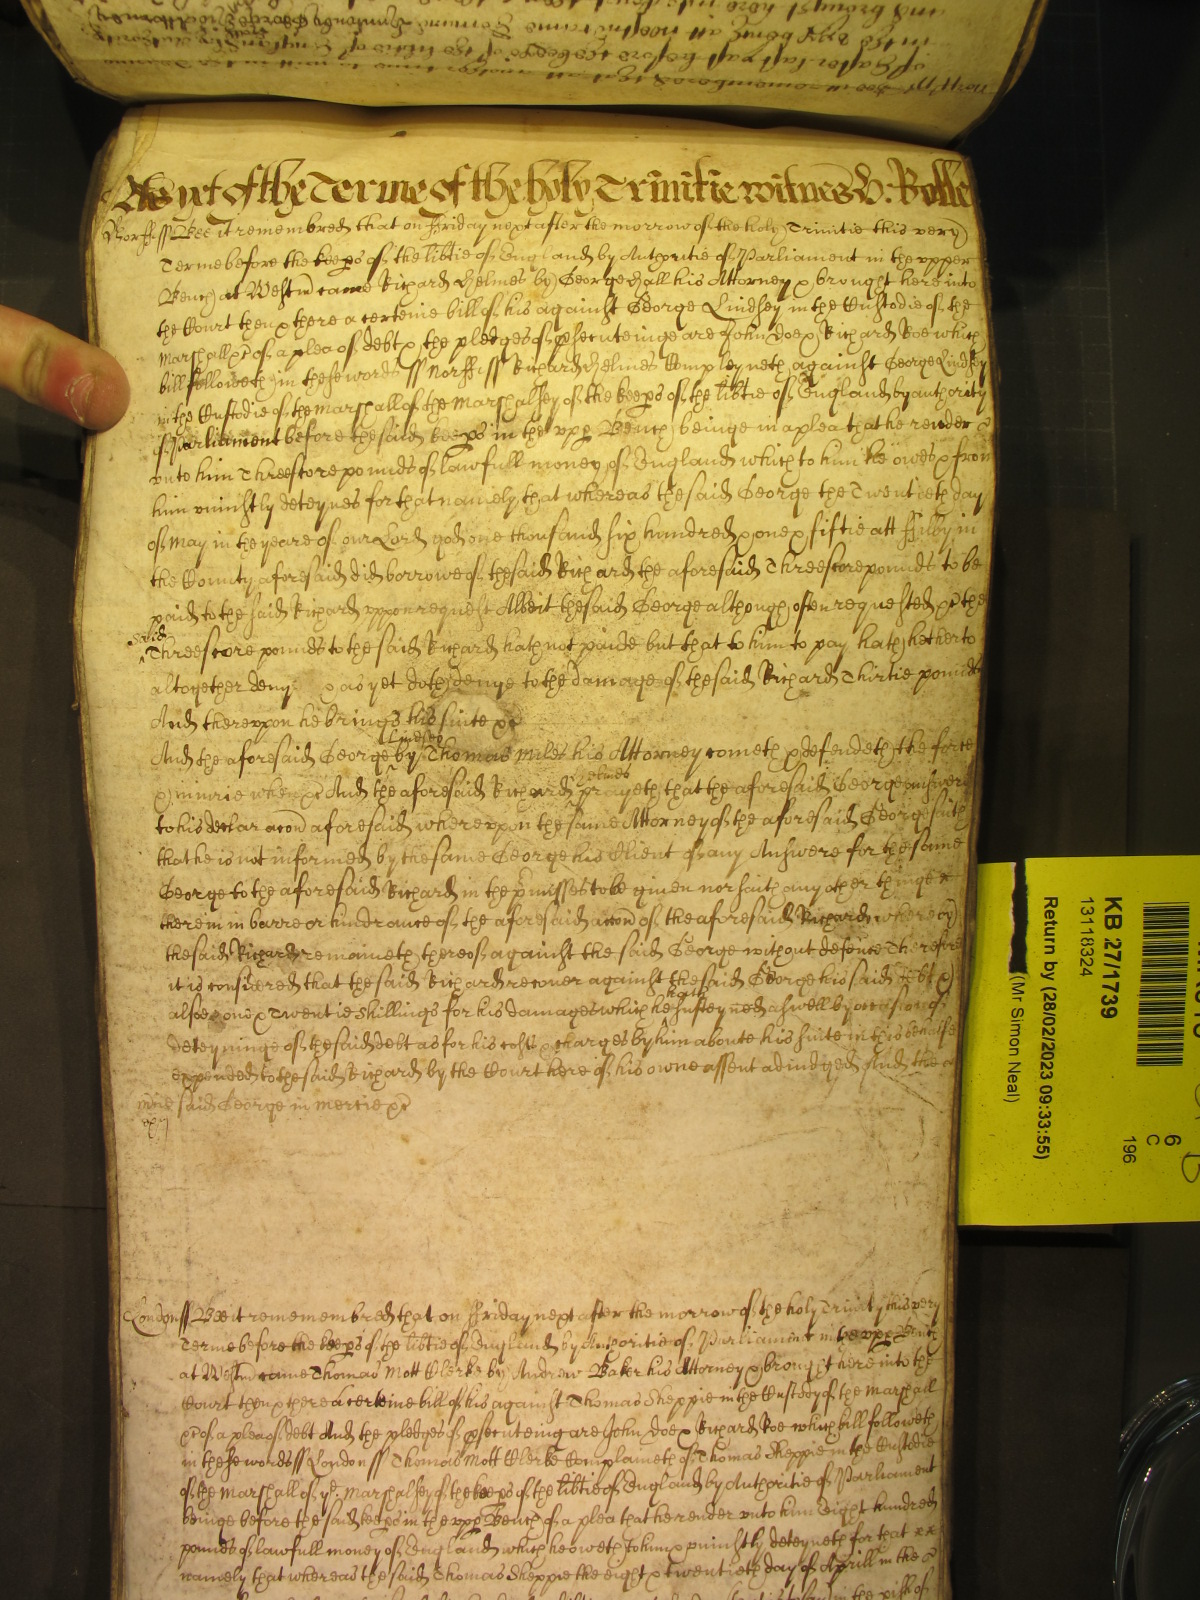 As yet of the Terme of the holy Trinitie witnes H: Rolle
Norff ss Bee it remembred that on Friday next after the morrow of the holy Trinitie this very
Terme before the keeps of the libtie of England by Authoritie of Parliament in the upper
Bench at Westm came Richard Helmes by George Hall his Attorney & brought here into
the Court then & there a certeine bill of his against George Lindsey in the Custodie of the
Marshall &c of a plea of debt & the pledges of psecuteinge are John Doe & Richard Roe which
bill followeth in these words ss Norff ss Richard Helmes Compleyneth against George Lindsey
in the Custodie of the marshall of the Marshalsey of the keeps of the libtie of England by authority
of Parliament before the said keeps in the upp Bench beinge in a plea that he render
unto him Threescore pounds of lawfull money of England which to him he owes & from
him uniustly deteynes for that namely that whereas the said George the Twentieth day
of May in the yeare of our Lord god one thousand six hundred & one & fiftie att Filby in
the County aforesaid did borrowe of the said Richard the aforesaid Threescore pounds to be
paid to the said Richard uppon request Albeit the said George although often requested &c the
said
Threescore pounds to the said Richard hath not paide but that to him to pay hath hetherto
altogether deny & as yet doth denye to the damage of the said Richard Thirtie pounds
And thereuppon he brings his suite &c
Lindsey
And the aforesaid George by Thomas Miles his Attorney cometh & defendeth the force
& iniurie when &c And the aforesaid Richard prayeth that the aforesaid George answere
Helmes
to his declaracon aforesaid whereuppon the same Attorney of the aforesaid George saith
that he is not informed by the same George his Client of any Answere for the same
George to the aforesaid Richard in the pmisses to be given nor saith any other thinge
therein in barre or hindrance of the aforesaid accon of the aforesaid Richard whereby
the said Richard remaineth thereof against the said George without defence Therefore
it is considered that the said Richard recover against the said George his said debt &
alsoe one & Twentie shillings for his damages which he susteyned aswell by occasion of
hath
deteyninge of the said debt as for his costs & charges by him aboute his suite in this behalfe
expended to the said Richard by the Court here of his owne assent adiudged And the
said George in mercie &c
mcie
London ss Bee it rememembred that on Friday next after the morrow of the holy Trinity this very
Terme before the keeps of the libtie of England by Authoritie of Parliament in the upp Bench
at Westm came Thomas Mott Clerke by Andrew Baker his Attorney & brought here into the
Court then & there a certeine bill of his against Thomas Sheppie in the Custody of the Marshall
&c of a plea of debt And the pledges of psecuteing are John Doe & Richard Roe which bill followeth
in these words ss London ss Thomas Mott Clerke Complaineth of Thomas Sheppie in the Custodie
of the Marshall of ye Marshalsey of the keeps of the libtie of England by Authoritie of Parliament
beinge before the said keeps in the upp Bench of a plea that he render unto him Eight hundred
pounds of lawfull money of England which he oweth to him & uniustly deteyneth for that
namely that whereas the said Thomas Sheppie the eight & twentieth day of Aprill in the
KB 27/1739
13118324
Return by (28/02/2023 09:33:55)
(Mr Simon Neal)
6
C
196